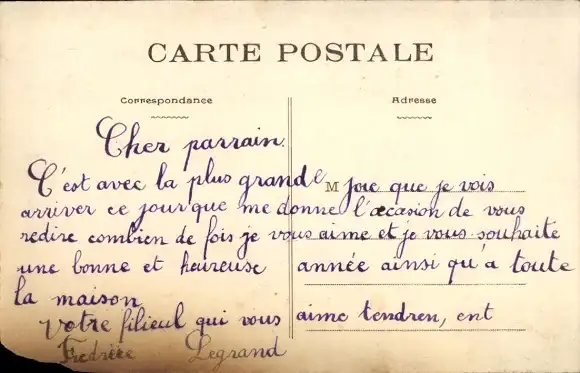 CARTE POSTALE
Correspondance
Adresse
Cher parrain.
C'est avec la plus grande M joie que je vois
arriver ce jour que me donne l'occasion de vous
redire combien de fois je vous aime et je vous souhaite
une bonne et heureuse année ainsi qu'a toute
la maison
Votre filieul qui vous aime tendren, ent
Fredrèee Legrand